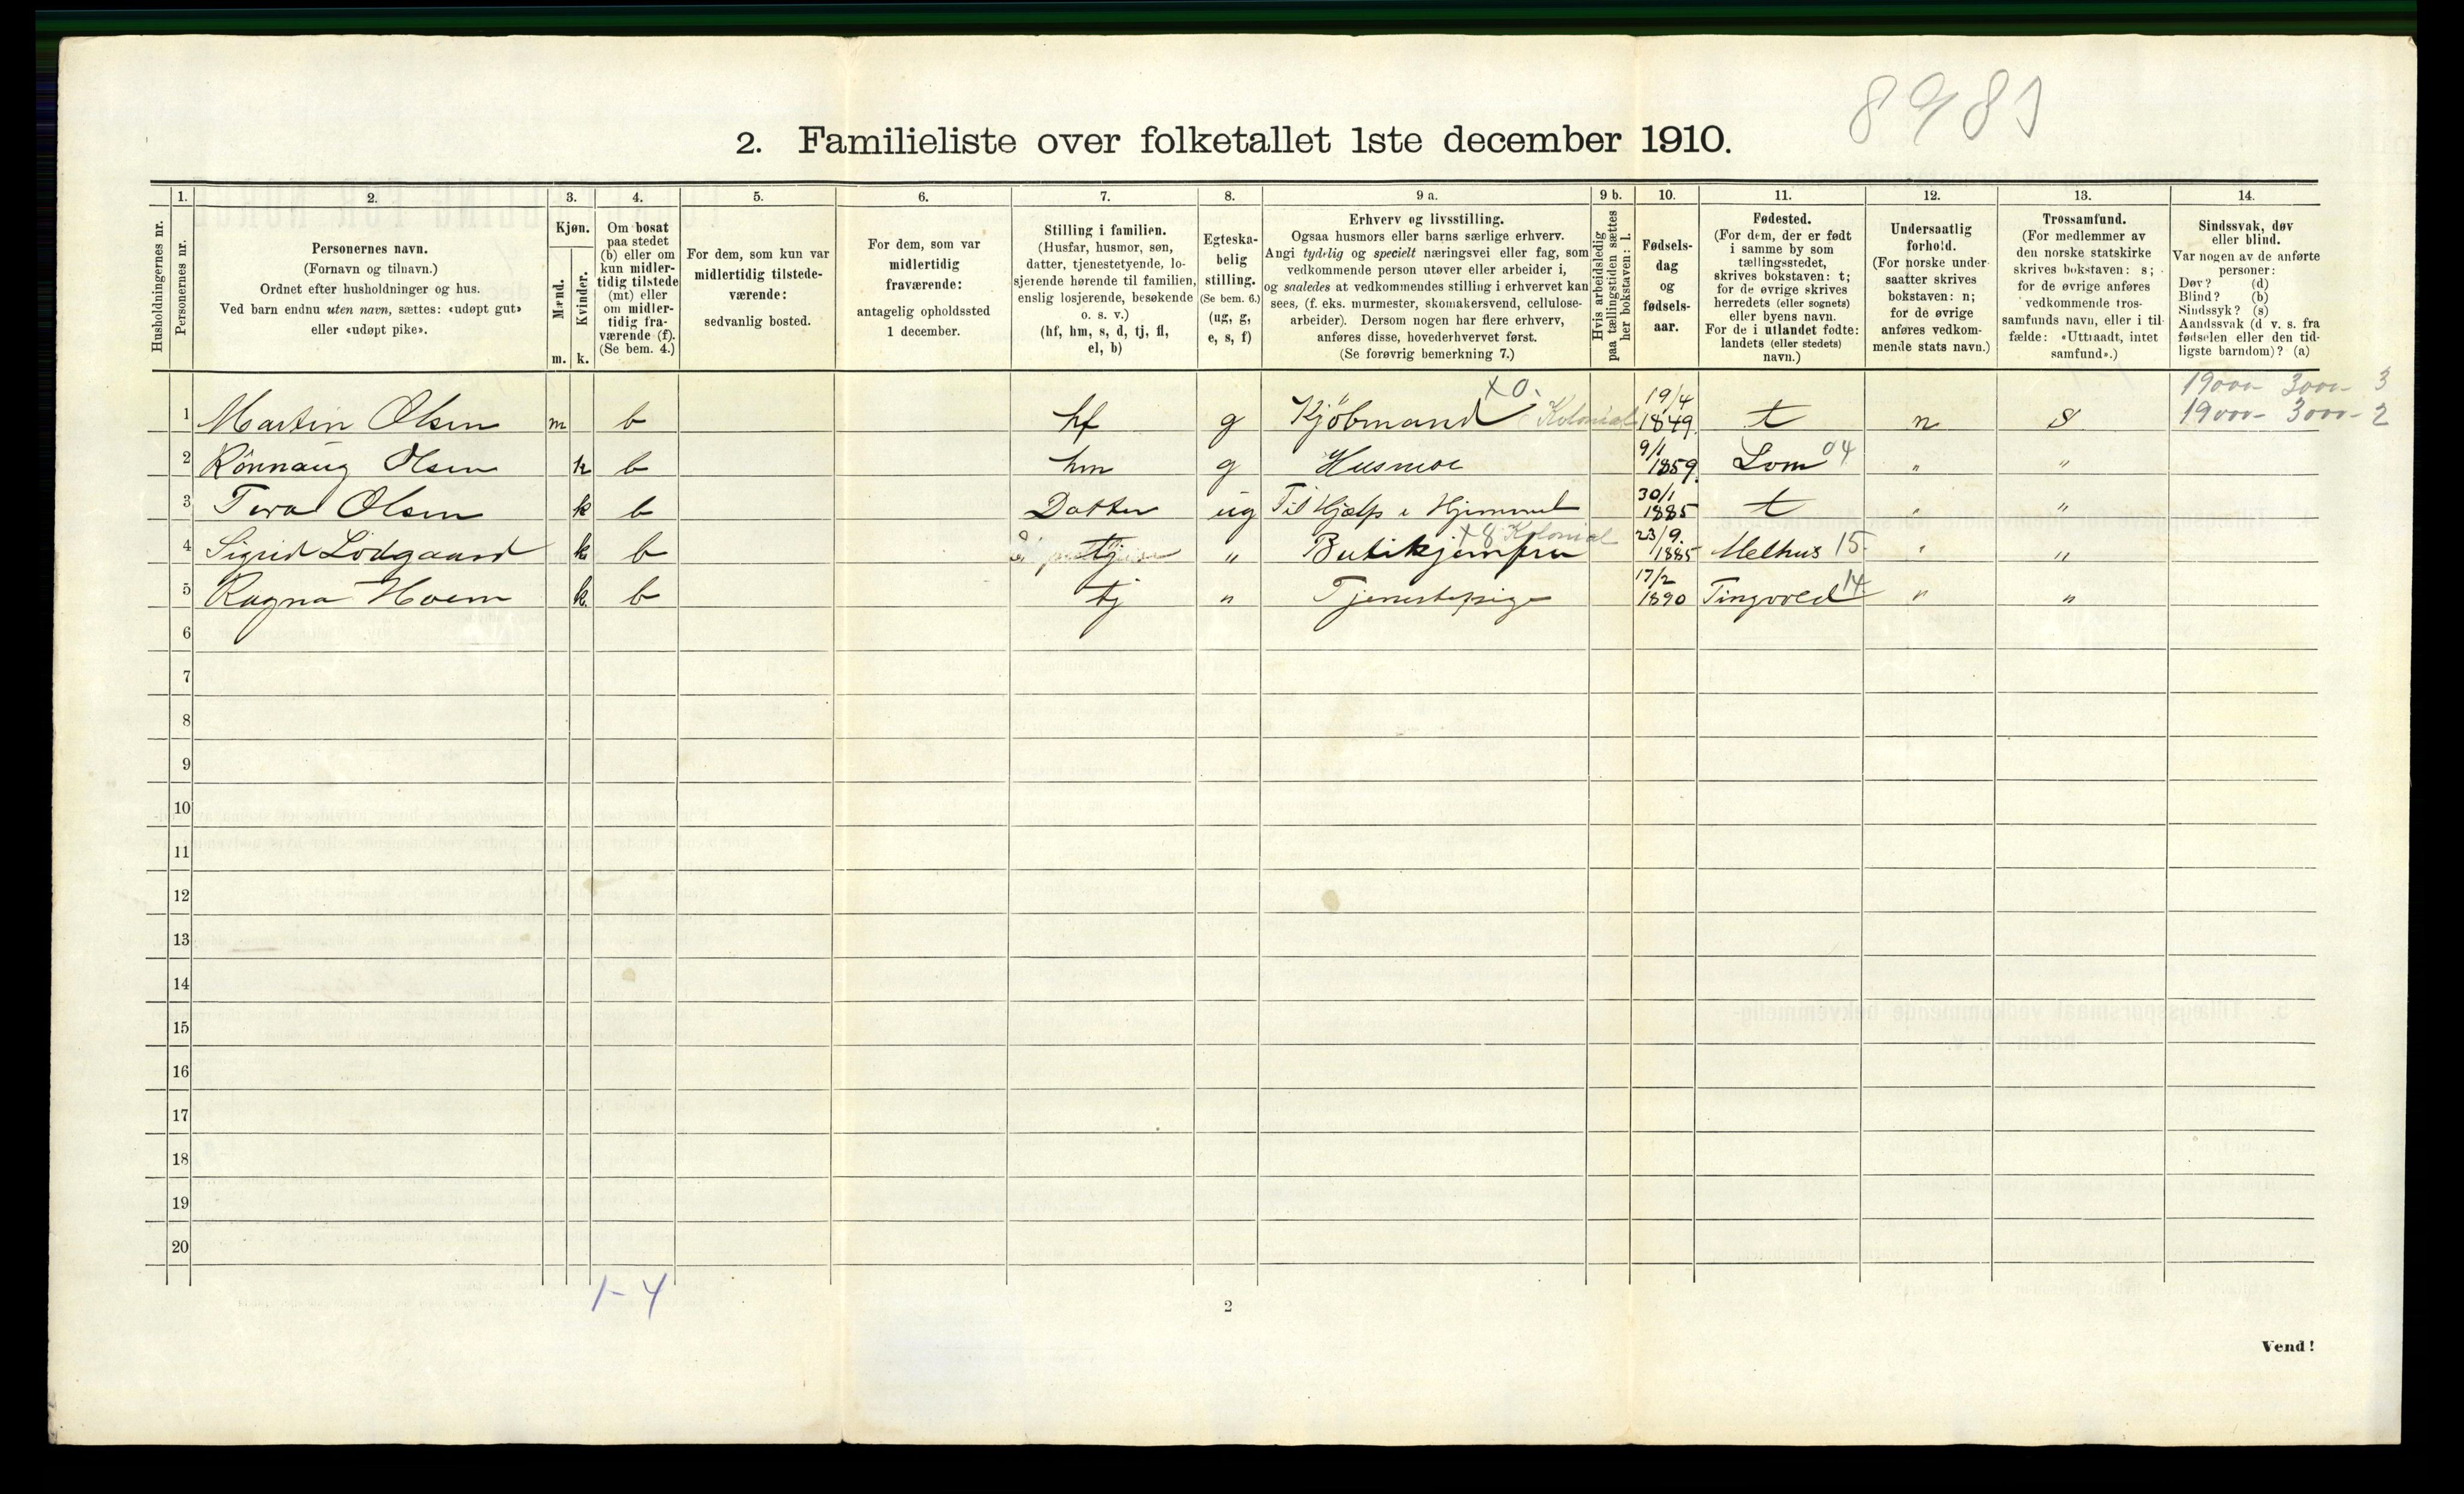 8981
2. Familieliste over folketallet 1ste december 1910.
Husholdningernes nr.
1. Personernes nr.
2. Personernes navn.
(Fornavn og tilnavn.)
Ordnet efter husholdninger og hus.
Ved barn endnu uten navn, sættes: «udøpt gut»
eller «udøpt pike».
3. Kjøn.
Mænd. m.
Kvinder. k.
4. Om bosat
paa stedet
(b) eller om
kun midler-
tidig tilstede
(mt) eller
om midler-
tidig fra-
værende (f).
(Se bem. 4.)
5. For dem, som kun var
midlertidig tilstede-
værende:
sedvanlig bosted.
6. For dem, som var
midlertidig
fraværende:
antagelig opholdssted
1 december.
7. Stilling i familien.
(Husfar, husmor, søn,
datter, tjenestetyende, lo-
sjerende hørende til familien,
enslig losjerende, besøkende
o. s. v.)
(hf, hm, s, d, tj, fl,
el, b)
8. Egteska-
belig
stilling.
(Se bem. 6.)
(ug, g,
e, s, f)
9 a. Erhverv og livsstilling.
Ogsaa husmors eller barns særlige erhverv.
Angi tydelig og specielt næringsvei eller fag, som
vedkommende person utøver eller arbeider i,
og saaledes at vedkommendes stilling i erhvervet kan
sees, (f. eks. murmester, skomakersvend, cellulose-
arbeider). Dersom nogen har flere erhverv,
anføres disse, hovederhvervet først.
(Se forøvrig bemerkning 7.)
9 b. Hvis arbeidsledig
paa tællingstiden sættes
her bokstaven: l.
10. Fødsels-
dag
og
fødsels-
aar.
11. Fødested.
(For dem, der er født
i samme by som
tællingsstedet,
skrives bokstaven: t;
for de øvrige skrives
herredets (eller sognets)
eller byens navn.
For de i utlandet fødte:
landets (eller stedets)
navn.)
12. Undersaatlig
forhold.
(For norske under-
saatter skrives
bokstaven: n;
for de øvrige
anføres vedkom-
mende stats navn.)
13. Trossamfund.
(For medlemmer av
den norske statskirke
skrives bokstaven: s;
for de øvrige anføres
vedkommende tros-
samfunds navn, eller i til-
fælde: «Uttraadt, intet
samfund».)
14. Sindssvak, døv
eller blind.
Var nogen av de anførte
personer:
Døv? (d)
Blind? (b)
Sindssyk? (s)
Aandssvak (d v. s. fra
fødselen eller den tid-
ligste barndom)? (a)
19000- 3000- 3
1 Martin Olsen m b hf g Kjöbmand x0. Kolonial 19/4 1849. t n S 19000- 3000- 2
2 Rönnaug Olsen k b hm g Husmor 9/1 1859. Lom 04 " "
3 Tora Olsen k b Datter ug Til Hjælp i Hjemmet 30/1 1885 t " "
4 Sigrid Lödgaard k b tj " Butikjomfru x8 Kolonial 23/9. 1885 Melhus 15. " "
5 Ragna Hoem k. b tj " Tjenestepige 17/2 1890 Tingvold 14. " "
6
7
8
9
10
11
12
13
14
15
16
17
18
19
20
1-4
2
Vend!